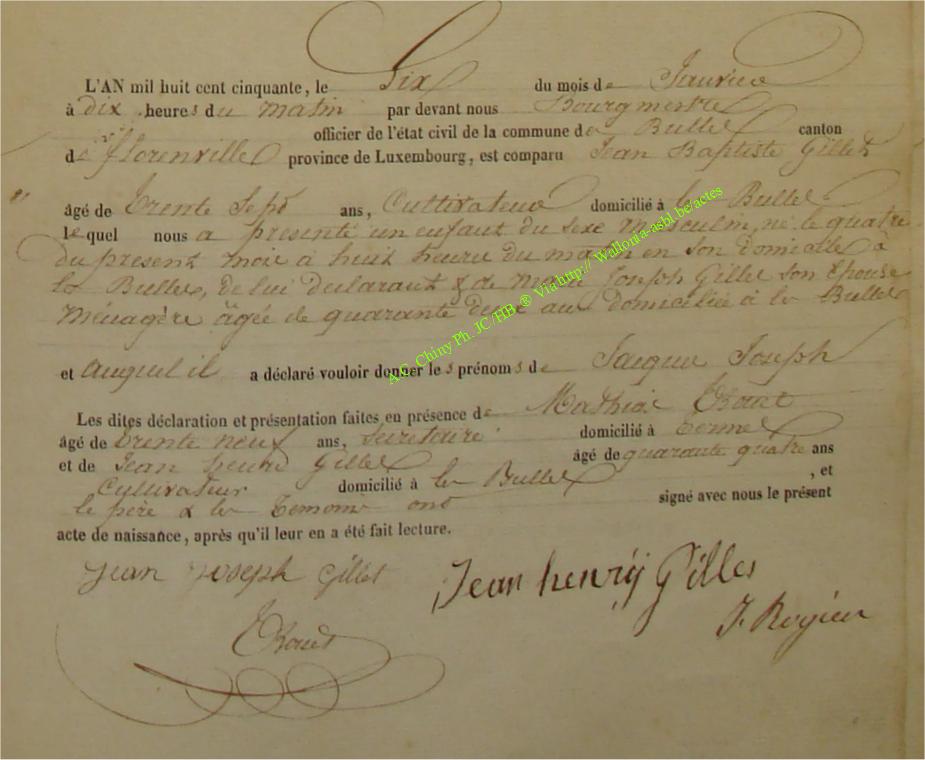 L'AN mil huit cent cinquante, le Six du mois de Janvier
à dix heures du matin par devant nous Bourgmestre
officier de l'état civil de la commune de les Bulles canton
de florenville province de Luxembourg, est comparu Jean Baptiste Gilles
âgé de trente Sept ans, Cultivateur domicilié à les Bulles
lequel nous a présenté un enfant du sexe masculin, né le quatre
du présent mois à huit heures du matin en son domicile à
les Bulles, de lui déclarant & de Joseph Gilles son Epouse
Ménagère âgée de quarante ans domiciliée à les Bulles
et auquel il a déclaré vouloir donner les prénoms de Jacques Joseph
Les dites déclaration et présentation faites en présence de Mathias
âgé de trente neuf ans, Secrétaire domicilié à termes
et de Jean henri Gilles âgé de quarante quatre ans
Cultivateur domicilié à les Bulles , et
le père & les temoins ont signé avec nous le présent
acte de naissance, après qu'il leur en a été fait lecture.
Jean Joseph Gillet
Jean henrÿ Gilles
A.C. Chiny Ph. JC /HB ® Via http:// Wallonia-asbl.be/actes